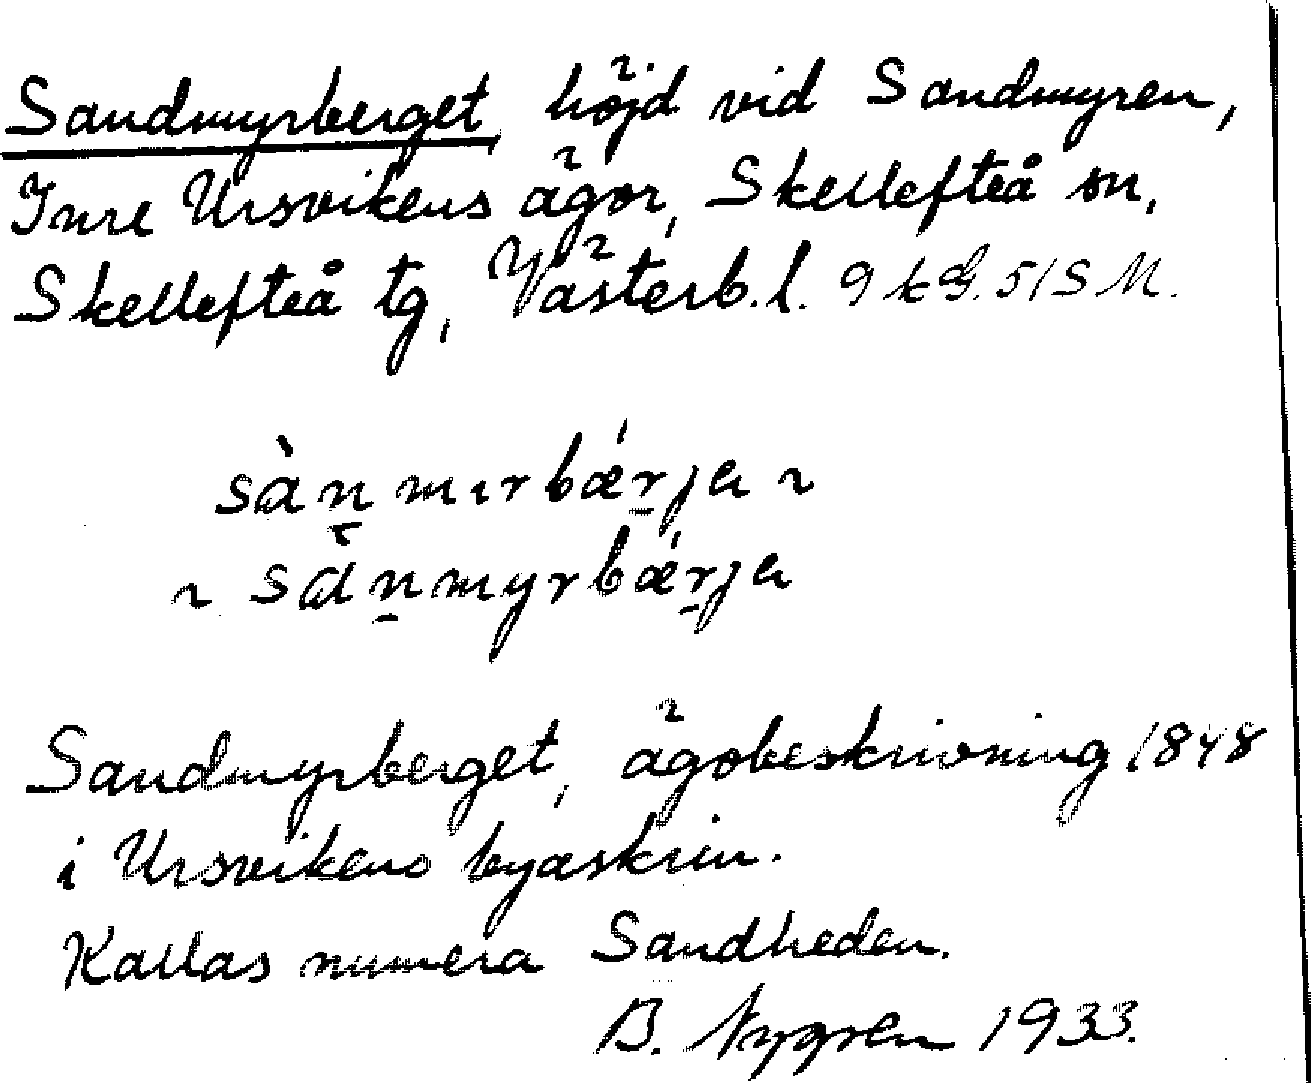 Sandmyrberget, höjd vid Sandmyren,
Inre Ursvikens ägor, Skellefteå sn,
Skellefteå tg, Västerb. l. 9 k G. 51 S M.
sànmırbǽrja ~
~ sànmyrbǽrja
Sandmyrberget, ägobeskrivning 1848
i Ursvikens byaskrin.
Kallas numera Sandheden.
B. Nygren 1933.